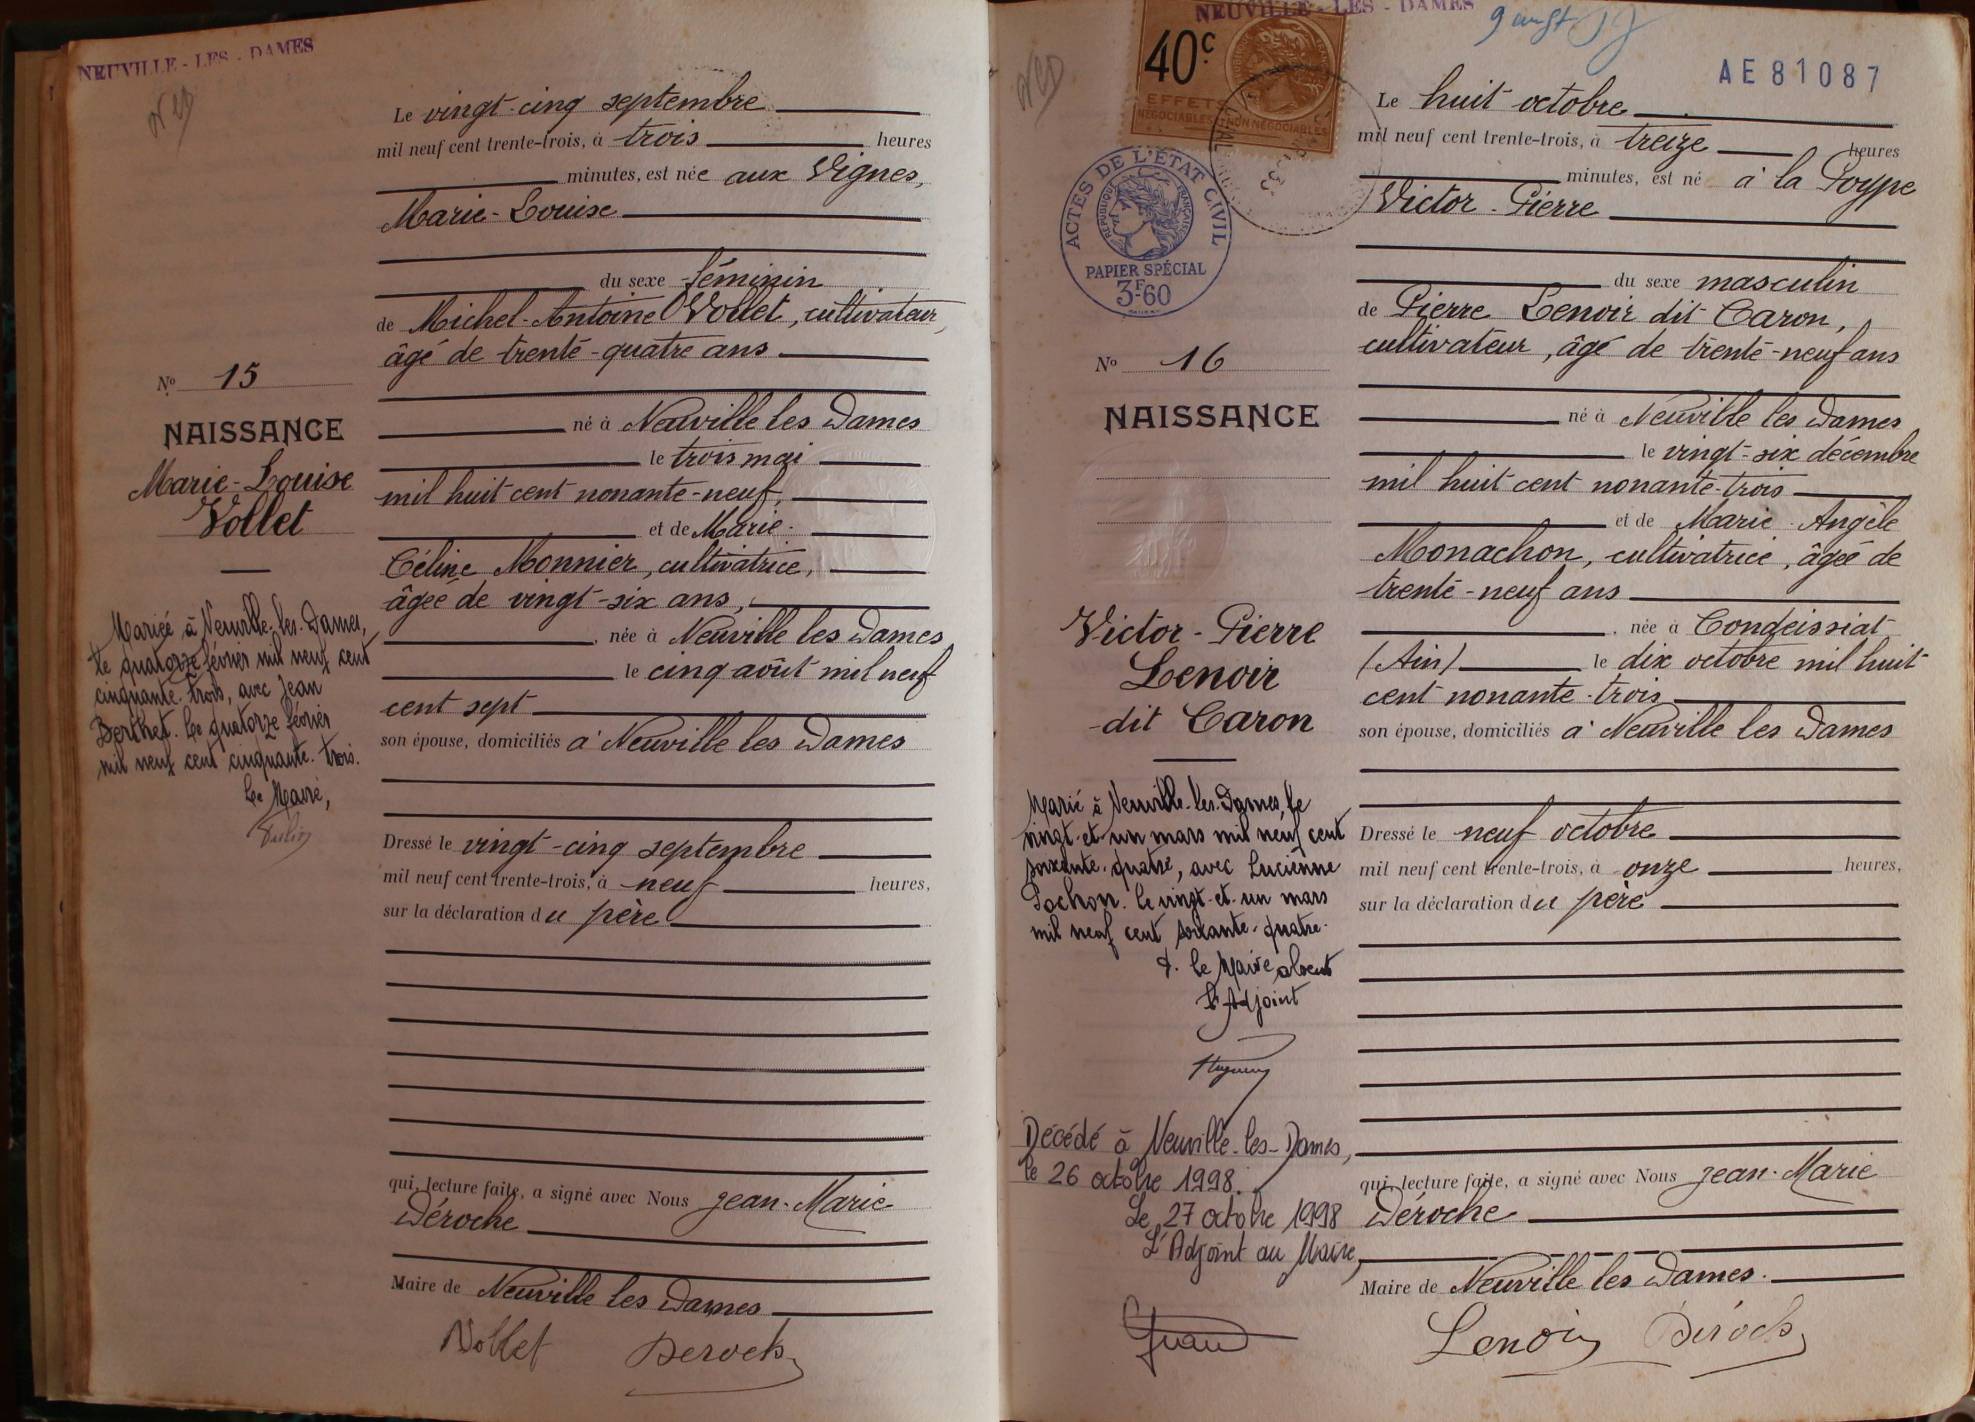 NEUVILLE - LES - DAMES
Le vingt-cinq septembre
mil neuf cent trente-trois, à trois heures
minutes, est née aux Vignes,
Marie-Louise
du sexe féminin
de Michel-Antoine Vollet, cultivateur,
âgé de trente-quatre ans
né à Neuville les Dames
le trois mai
mil huit cent nonante-neuf,
et de Marie-
Céline Monnier, cultivatrice,
âgée de vingt-six ans,
née à Neuville les Dames
le cinq août mil neuf
cent sept
son épouse, domiciliés à Neuville les Dames
Dressé le vingt-cinq septembre
mil neuf cent trente-trois, à neuf heures,
sur la déclaration du père
qui, lecture faite, a signé avec Nous Jean-Marie
Déroche
Maire de Neuville les Dames
Vollet Deroche
No 15
NAISSANCE
Marie-Louise
Vollet
Mariée à Neuville-les-Dames,
le quatorze février mil neuf cent
cinquante-trois, avec Jean
Berthet. Le quatorze février
mil neuf cent cinquante-trois.
Le Maire,
NEUVILLE - LES - DAMES
40c
EFFETS
NÉGOCIABLES NON NÉGOCIABLES
AE81087
ACTES DE L'ÉTAT CIVIL
RÉPUBLIQUE FRANÇAISE
PAPIER SPÉCIAL
3F60
Le huit octobre
mil neuf cent trente-trois, à treize heures
minutes, est né à la Poype
Victor-Pierre
du sexe masculin
de Pierre Lenoir dit Caron,
cultivateur, âgé de trente-neuf ans
né à Neuville les Dames
le vingt-six décembre
mil huit cent nonante-trois
et de Marie-Angèle
Monachon, cultivatrice, âgée de
trente-neuf ans
née à Condeissiat
(Ain) le dix octobre mil huit
cent nonante-trois
son épouse, domiciliés à Neuville les Dames
Dressé le neuf octobre
mil neuf cent trente-trois, à onze heures,
sur la déclaration du père
qui, lecture faite, a signé avec Nous Jean-Marie
Déroche
Maire de Neuville les Dames.
Lenoir Déroche
No 16
NAISSANCE
Victor-Pierre
Lenoir
dit Caron
Marié à Neuville-les-Dames, le
vingt-et-un mars mil neuf cent
soixante-quatre, avec Lucienne
Pochon. Le vingt-et-un mars
mil neuf cent soixante-quatre.
P. le Maire absent
l'Adjoint
Décédé à Neuville-les-Dames,
le 26 octobre 1998.
Le 27 octobre 1998
L'Adjoint au Maire,